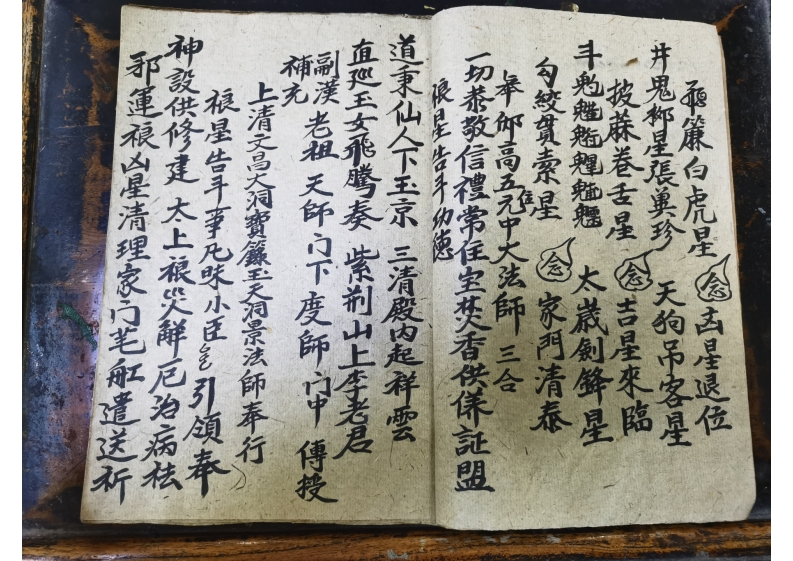 簾白虎星 念 凶星退位
井鬼柳星張翼珍 天狗吊客星
披蔴卷舌星 念 吉星來臨
斗魁𩲃魓魒 太歲劍鋒星
勾絞貫索星 念 家門清泰
奉 高五元中大法師 三合
一切恭敬信禮常住宝焚香供保証盟
禳星告斗功德
道東仙人下玉京 三清殿内起祥雲
直廵玉女飛騰奏 紫荆山上李老君
副漢 老祖 天師 门下度師 门中 傳授
補充
上清文昌大洞寶籙玉天洞景法師奉行
禳星告斗事凡昧小臣 引領奉
神設供修建 太上禳災解厄治病祛
邪運禳凶星清理家门 舡遣送祈